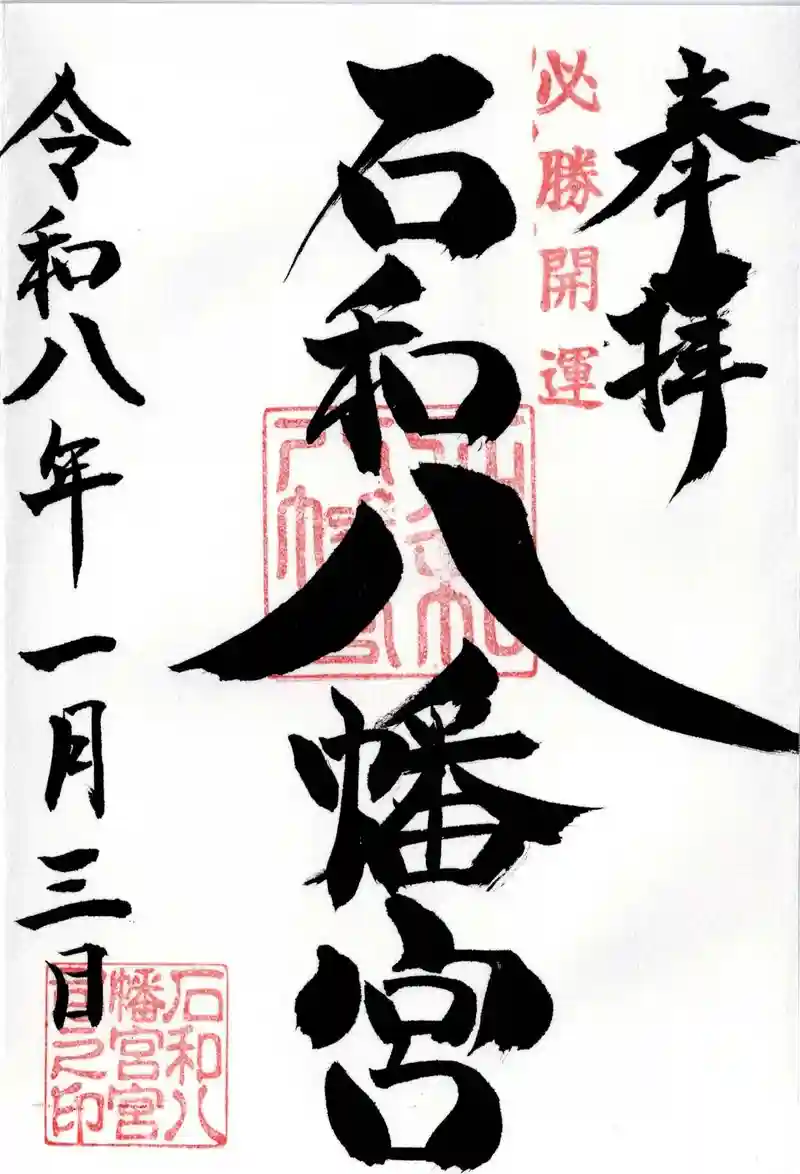 奉拝
必勝開運
石和八幡宮
令和八年一月三日
石和八
幡宮宮
司之印